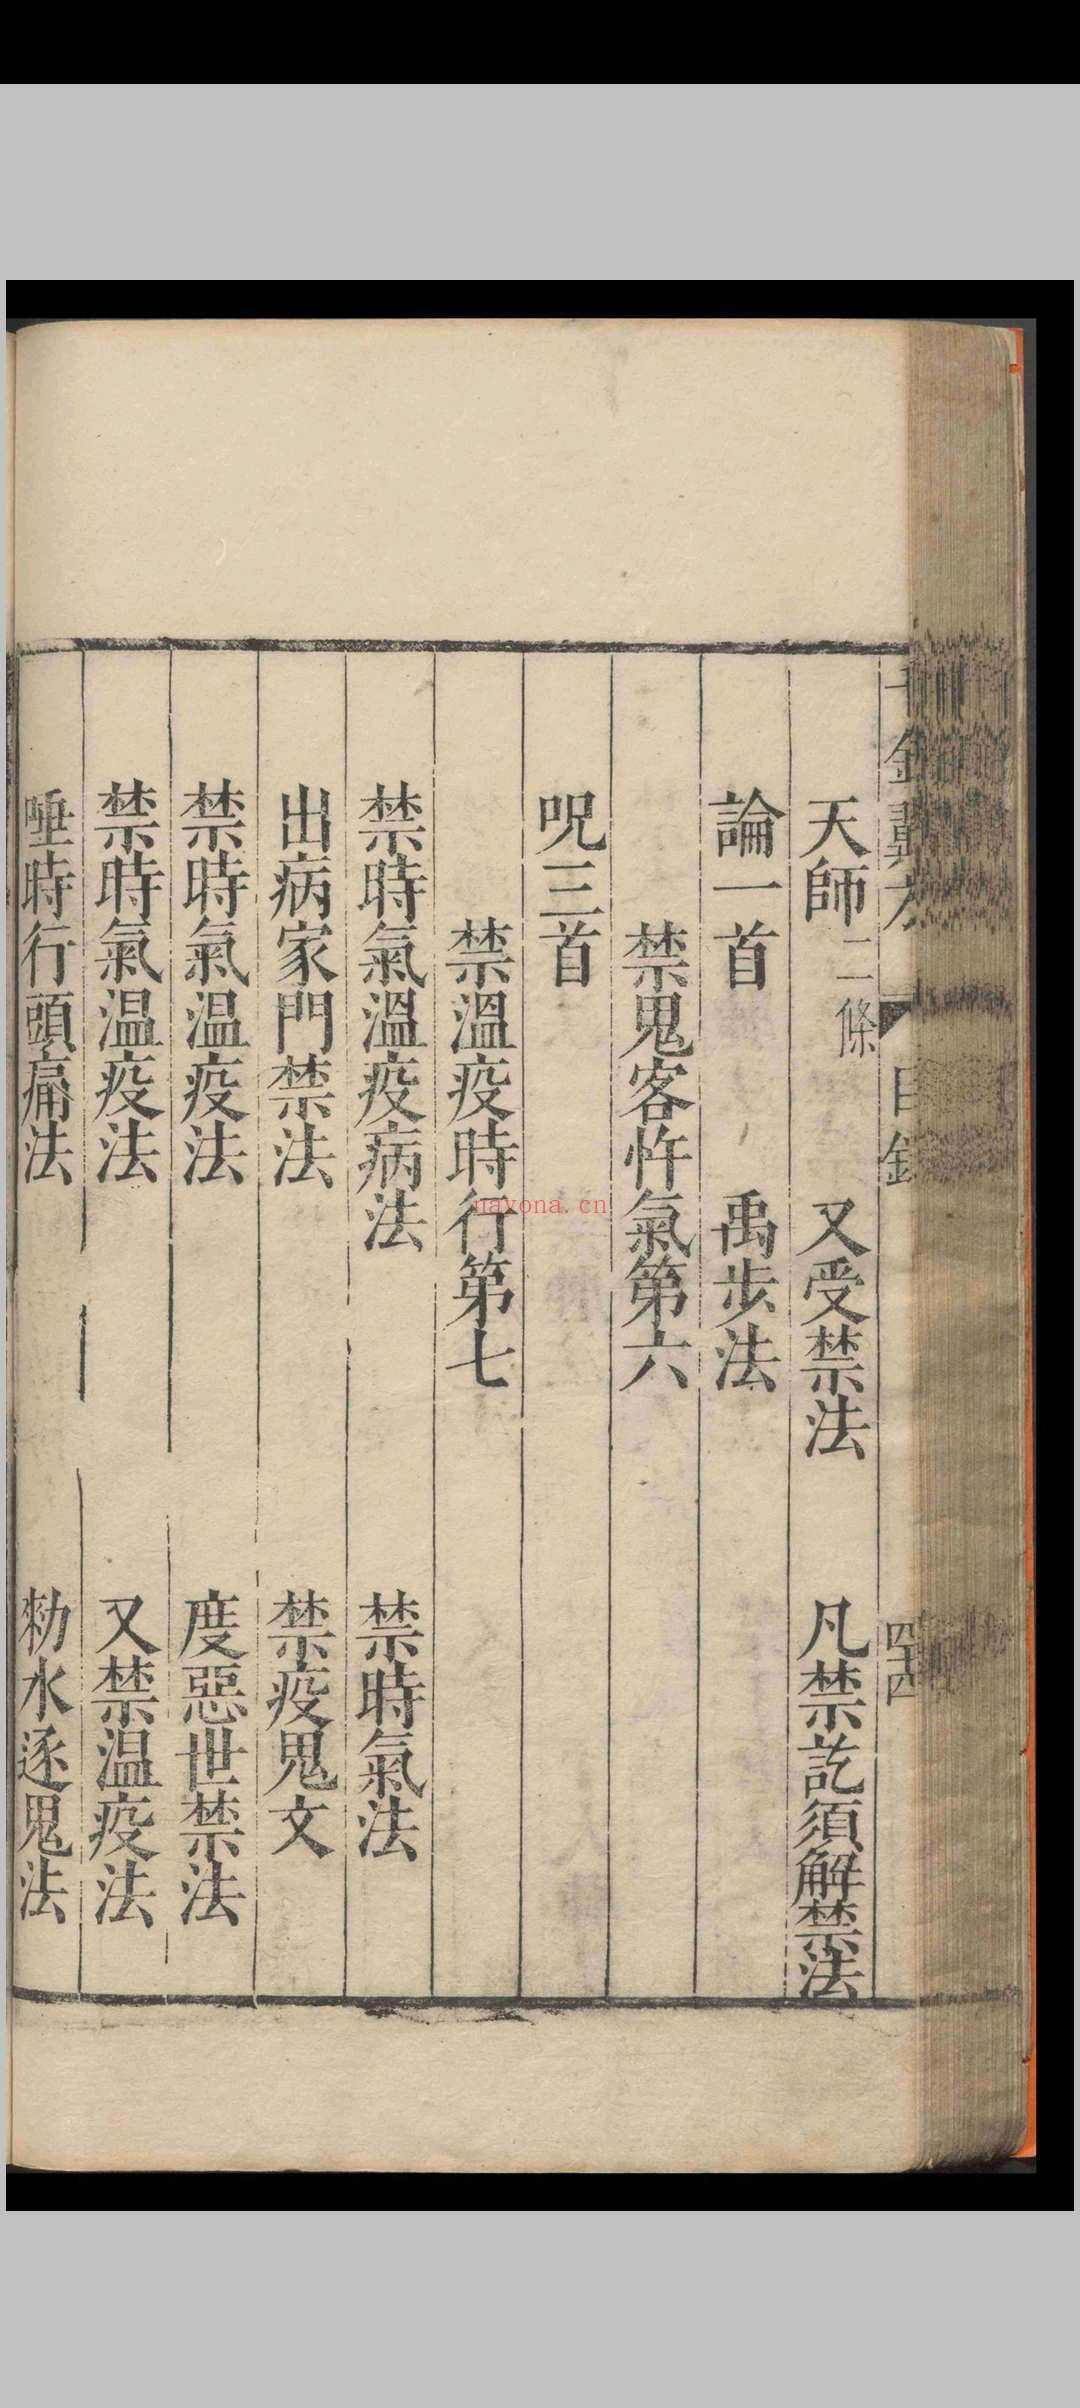 千金翼方 目錄 四十四
天師二條 又受禁法 凡禁訖須解禁法
論一首 禹步法
禁鬼客忤氣第六
呪三首
禁溫疫時行第七
禁時氣溫疫病法 禁時氣法
出病家門禁法 禁疫鬼文
禁時氣温疫法 度惡世禁法
禁時氣温疫法 又禁温疫法
唾時行頭痛法 勑水逐鬼法
nayona.cn